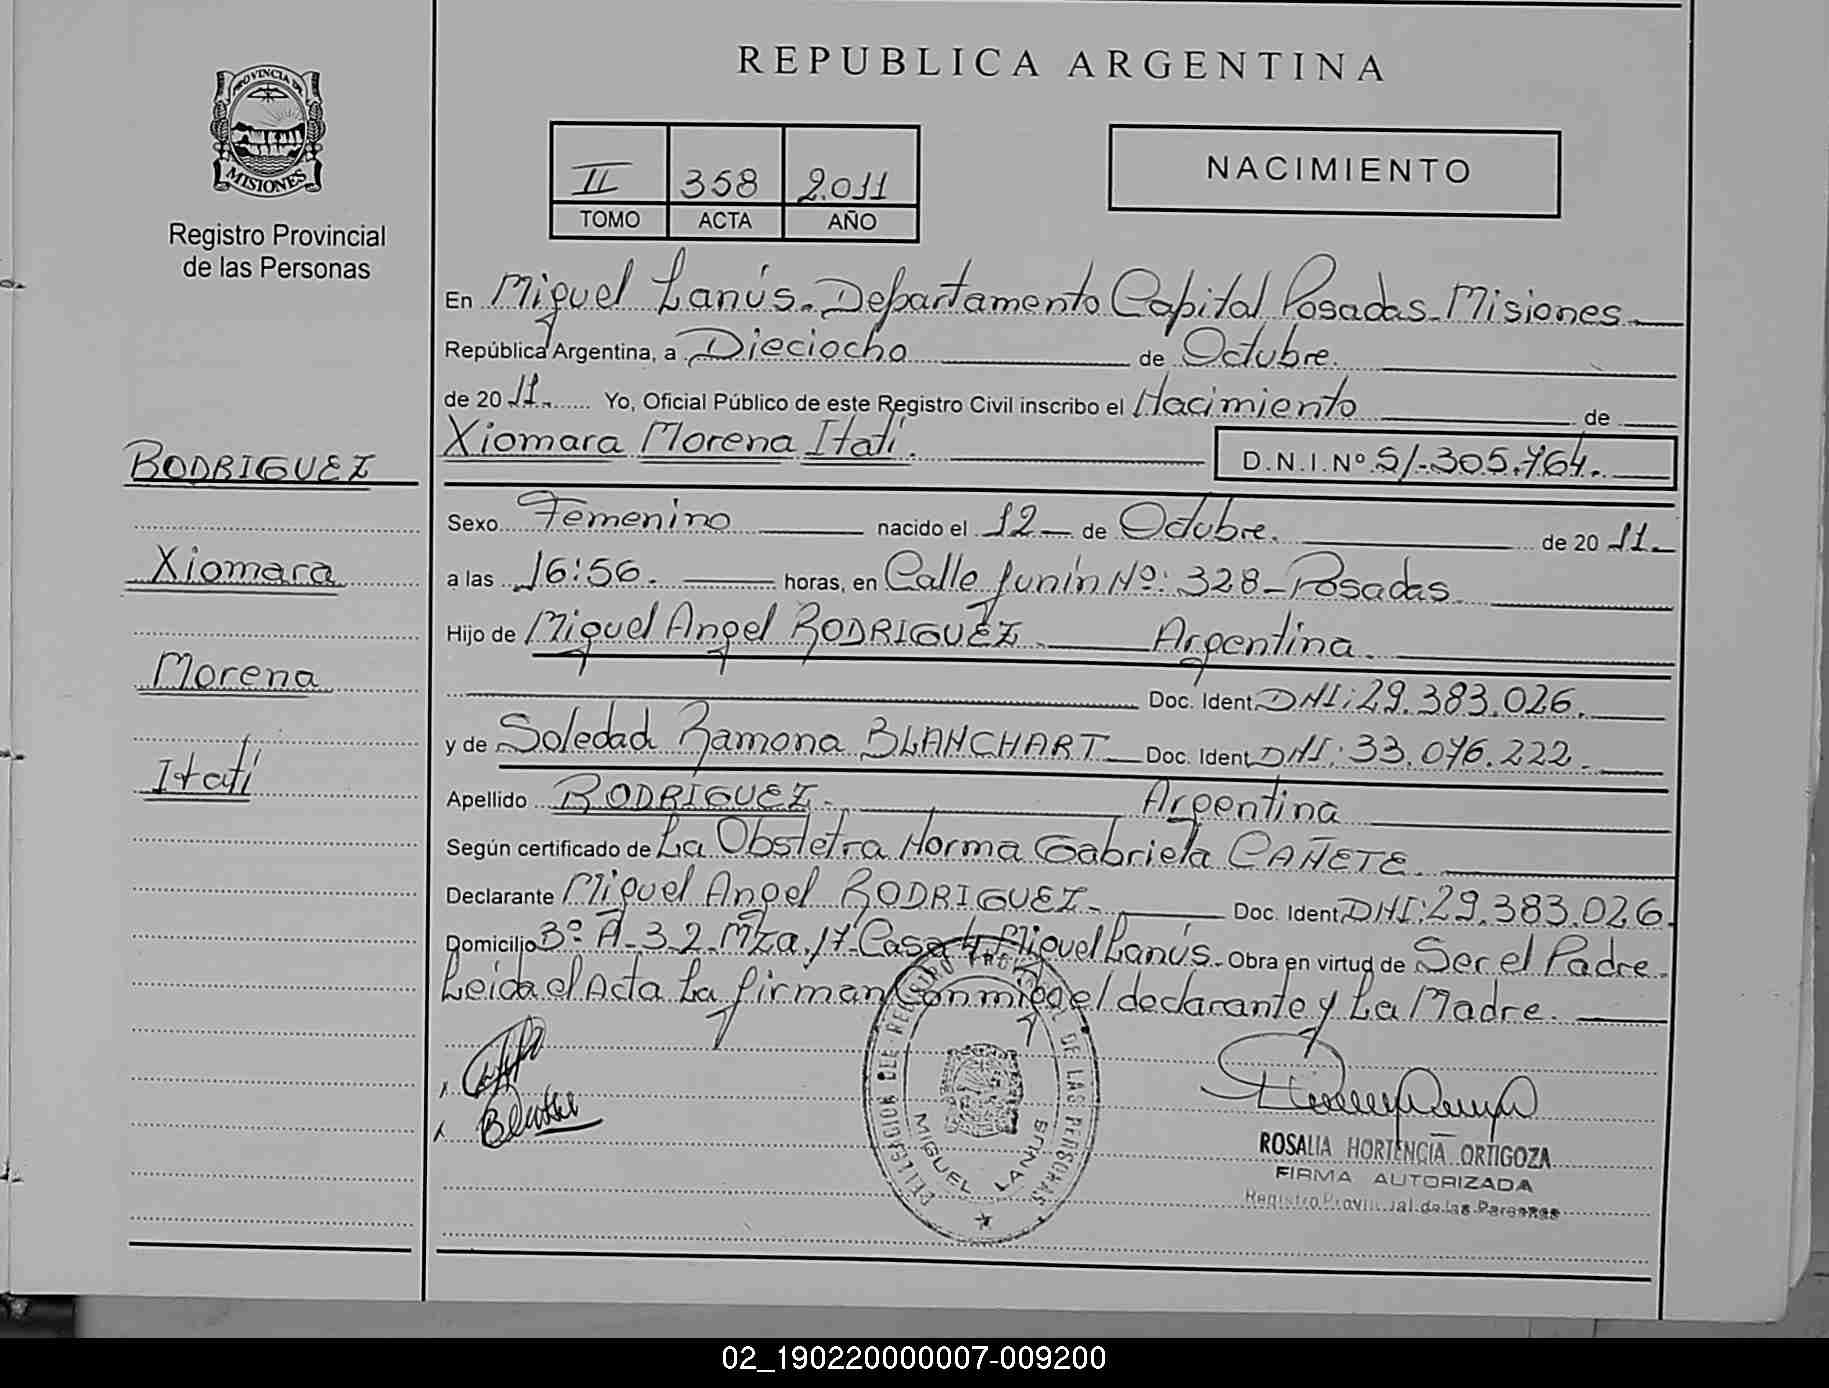 REPUBLICA ARGENTINA
PROVINCIA DE
MISIONES
Registro Provincial
de las Personas
II 358 2.011
TOMO ACTA AÑO
NACIMIENTO
En Miguel Lanús. Departamento Capital Posadas. Misiones
República Argentina, a Dieciocho de Octubre.
de 20 11. Yo, Oficial Público de este Registro Civil inscribo el Nacimiento de
Xiomara Morena Itatí.
D.N.I.Nº 51.305.764.
RODRIGUEZ
Xiomara
Morena
Itatí
Sexo Femenino nacido el 12 de Octubre. de 20 11.
a las 16:56. horas, en Calle Junín Nº: 328 - Posadas
Hijo de Miguel Angel RODRIGUEZ Argentina.
Doc. Ident DNI: 29.383.026.
y de Soledad Ramona BLANCHART Doc. Ident DNI: 33.076.222.
Apellido RODRIGUEZ. Argentina
Según certificado de La Obstetra Norma Gabriela CAÑETE.
Declarante Miguel Angel RODRIGUEZ. Doc. Ident DNI: 29.383.026.
Domicilio 3º A. 3.2. Mza. 17. Casa 4. Miguel Lanús. Obra en virtud de Ser el Padre.
Leida el Acta La firman Conmigo el declarante y La Madre.
DELEGACION DEL REGISTRO PROVINCIAL DE LAS PERSONAS
MIGUEL LANUS
ROSALIA HORTENCIA ORTIGOZA
FIRMA AUTORIZADA
Registro Provincial de las Personas
02_190220000007-009200